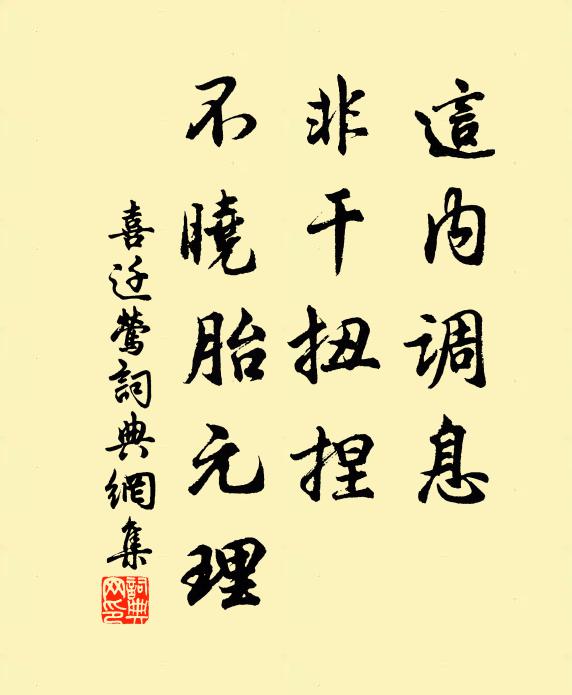 這内调息
非干扭捏
不曉胎元理
喜迁鶯詞典網集
詞典网印